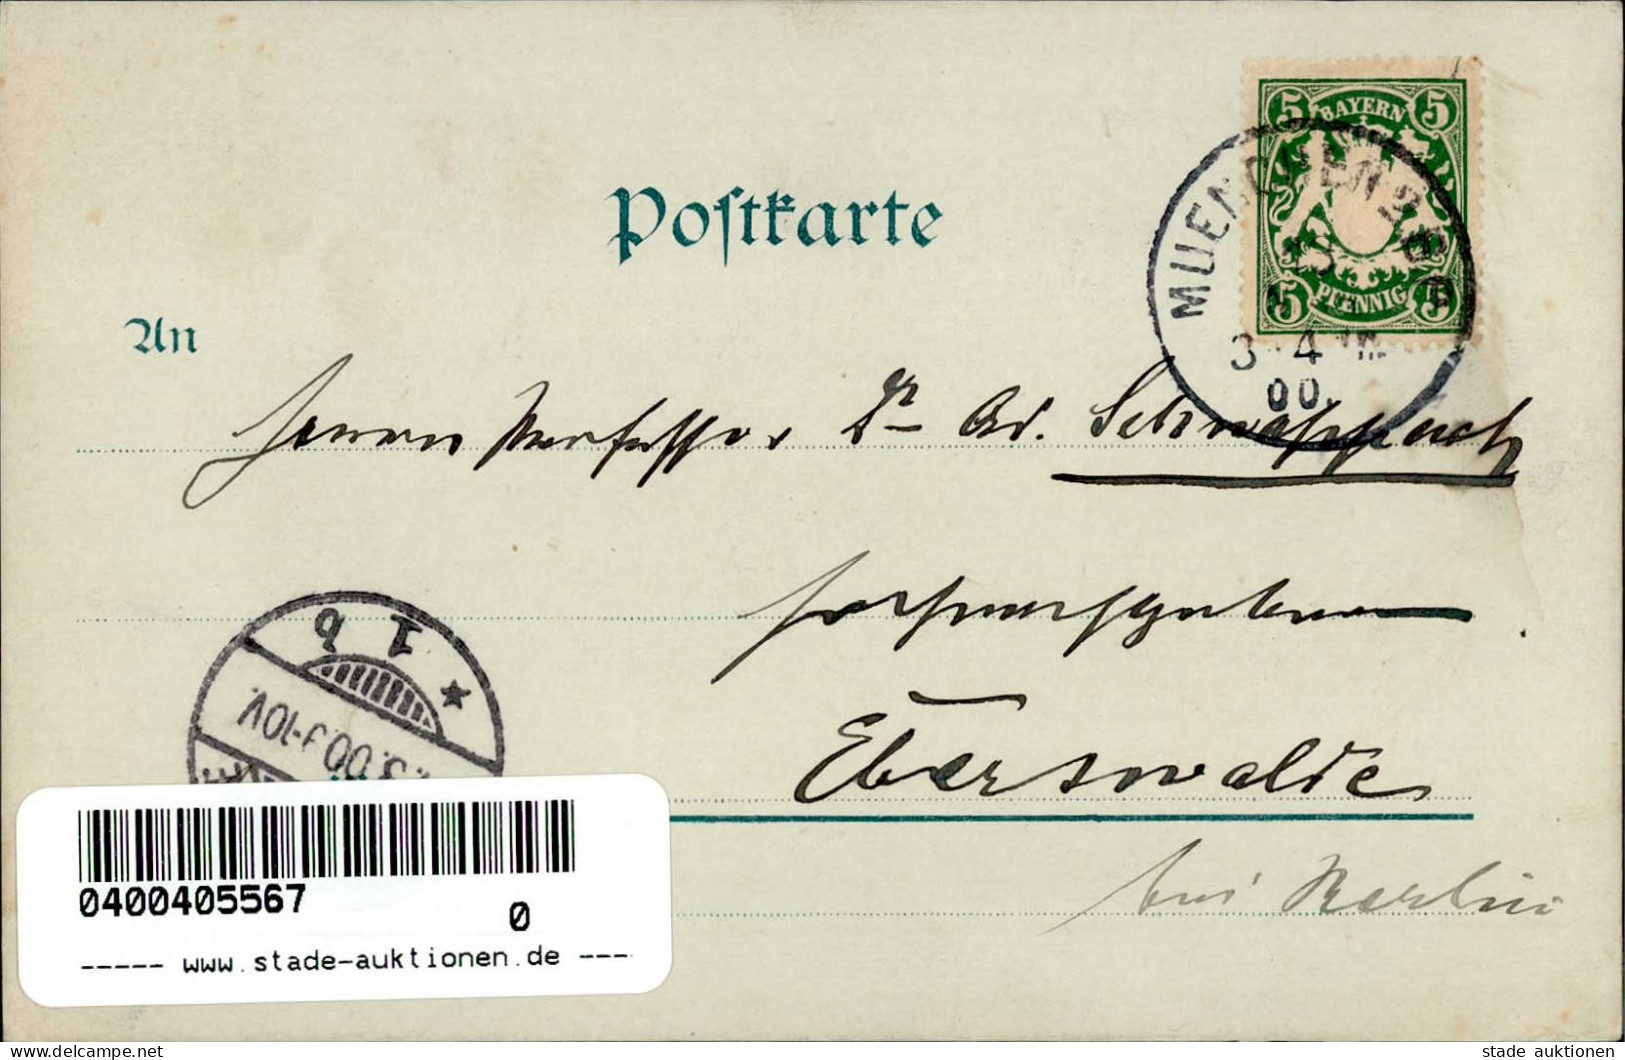 5 BAYERN 5
5 PFENNIG 5
MUENCHEN 2 B.P.
3 4
00.
Postkarte
An
Herrn Professor Dr. Ad. Schwappach
Eberswalde
bei Berlin
1 b
.5.00.7-10V.
0400405567
0
----- www.stade-auktionen.de ---
www.delcampe.net
stade auktionen